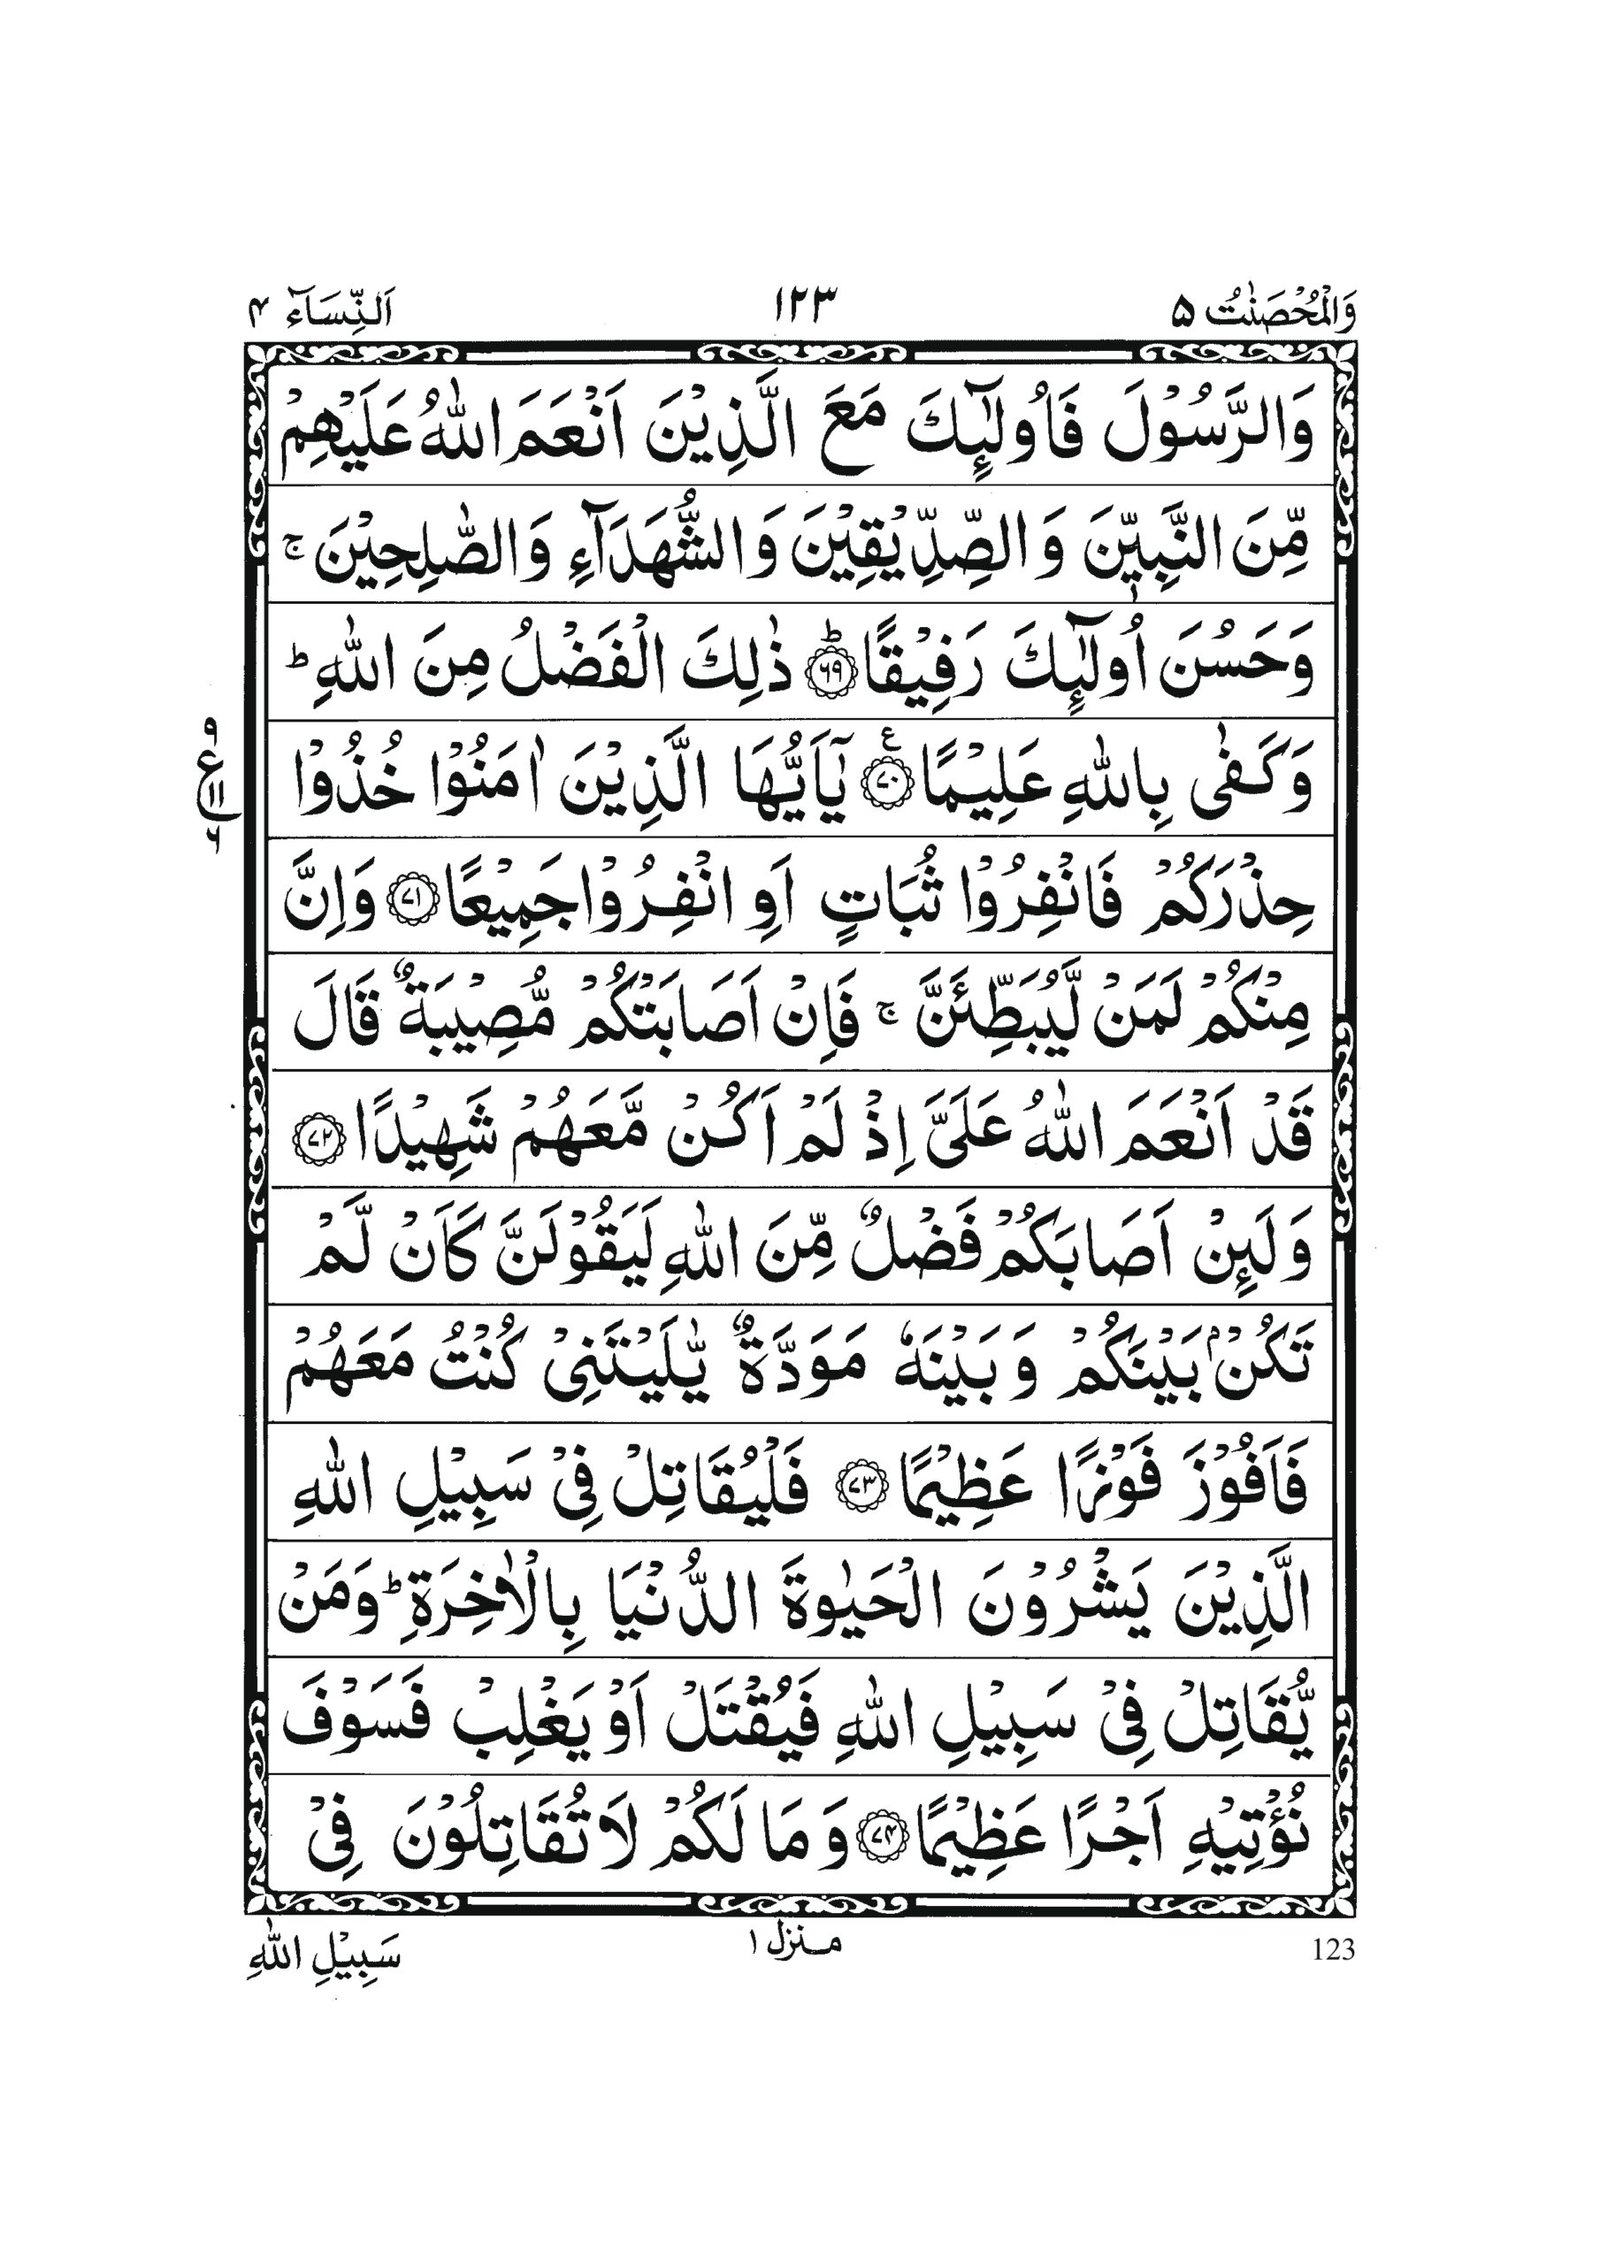 وَالْمُحْصَنٰتُ ۵ ۱۲۳ اَلنِّسَآء ۴
وَالرَّسُوْلَ فَاُولٰٓئِكَ مَعَ الَّذِيْنَ اَنْعَمَ اللّٰهُ عَلَيْهِمْ
مِّنَ النَّبِيّٖنَ وَالصِّدِّيْقِيْنَ وَالشُّهَدَآءِ وَالصّٰلِحِيْنَ ۚ
وَحَسُنَ اُولٰٓئِكَ رَفِيْقًا ؕ ﴿۶۹﴾ ذٰلِكَ الْفَضْلُ مِنَ اللّٰهِ ؕ
وَكَفٰى بِاللّٰهِ عَلِيْمًا ﴿۷۰﴾ ع يٰۤاَيُّهَا الَّذِيْنَ اٰمَنُوْا خُذُوْا
۹ ع ۱۱ ۶
حِذْرَكُمْ فَانْفِرُوْا ثُبَاتٍ اَوِ انْفِرُوْا جَمِيْعًا ﴿۷۱﴾ وَاِنَّ
مِنْكُمْ لَمَنْ لَّيُبَطِّئَنَّ ۚ فَاِنْ اَصَابَتْكُمْ مُّصِيْبَةٌ قَالَ
قَدْ اَنْعَمَ اللّٰهُ عَلَيَّ اِذْ لَمْ اَكُنْ مَّعَهُمْ شَهِيْدًا ﴿۷۲﴾
وَلَئِنْ اَصَابَكُمْ فَضْلٌ مِّنَ اللّٰهِ لَيَقُوْلَنَّ كَاَنْ لَّمْ
تَكُنْۢ بَيْنَكُمْ وَبَيْنَهٗ مَوَدَّةٌ يّٰلَيْتَنِيْ كُنْتُ مَعَهُمْ
فَاَفُوْزَ فَوْزًا عَظِيْمًا ﴿۷۳﴾ فَلْيُقَاتِلْ فِيْ سَبِيْلِ اللّٰهِ
الَّذِيْنَ يَشْرُوْنَ الْحَيٰوةَ الدُّنْيَا بِالْاٰخِرَةِ ؕ وَمَنْ
يُّقَاتِلْ فِيْ سَبِيْلِ اللّٰهِ فَيُقْتَلْ اَوْ يَغْلِبْ فَسَوْفَ
نُؤْتِيْهِ اَجْرًا عَظِيْمًا ﴿۷۴﴾ وَمَا لَكُمْ لَا تُقَاتِلُوْنَ فِيْ
123 منزل ۱ سَبِيْلِ اللّٰهِ